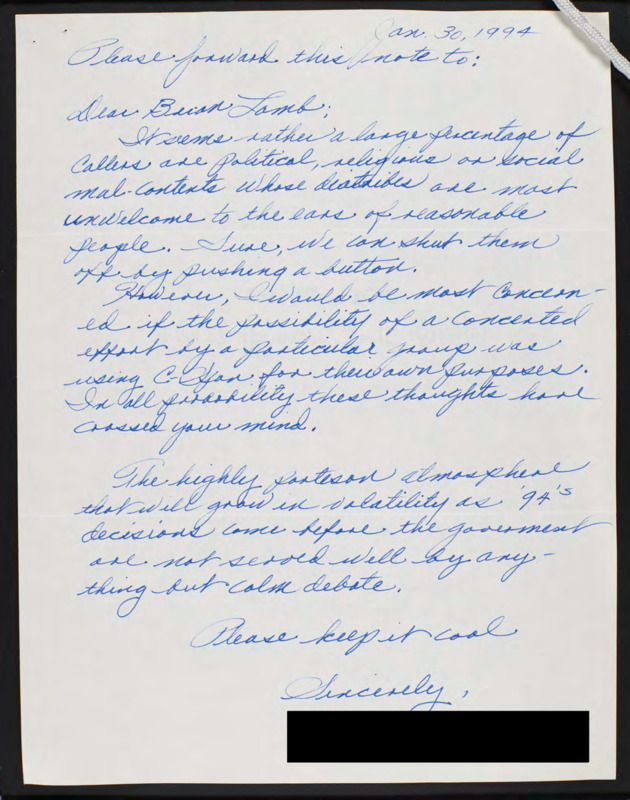 Jan. 30, 1994
Please forward this note to:
Dear Brian Lamb;
It seems rather a large percentage of
callers are political, religious or social
mal-contents whose diatribes are most
unwelcome to the ears of reasonable
people. Sure, we can shut them
off by pushing a button.
However, I would be most concern-
ed if the possibility of a concerted
effort by a particular group was
using C-Span for their own purposes.
In all probability these thoughts have
crossed your mind.
The highly parteson atmosphere
that will grow in volatility as '94's
decisions come before the goverment
are not served well by any-
thing but calm debate.
Please keep it cool
Sincerely,